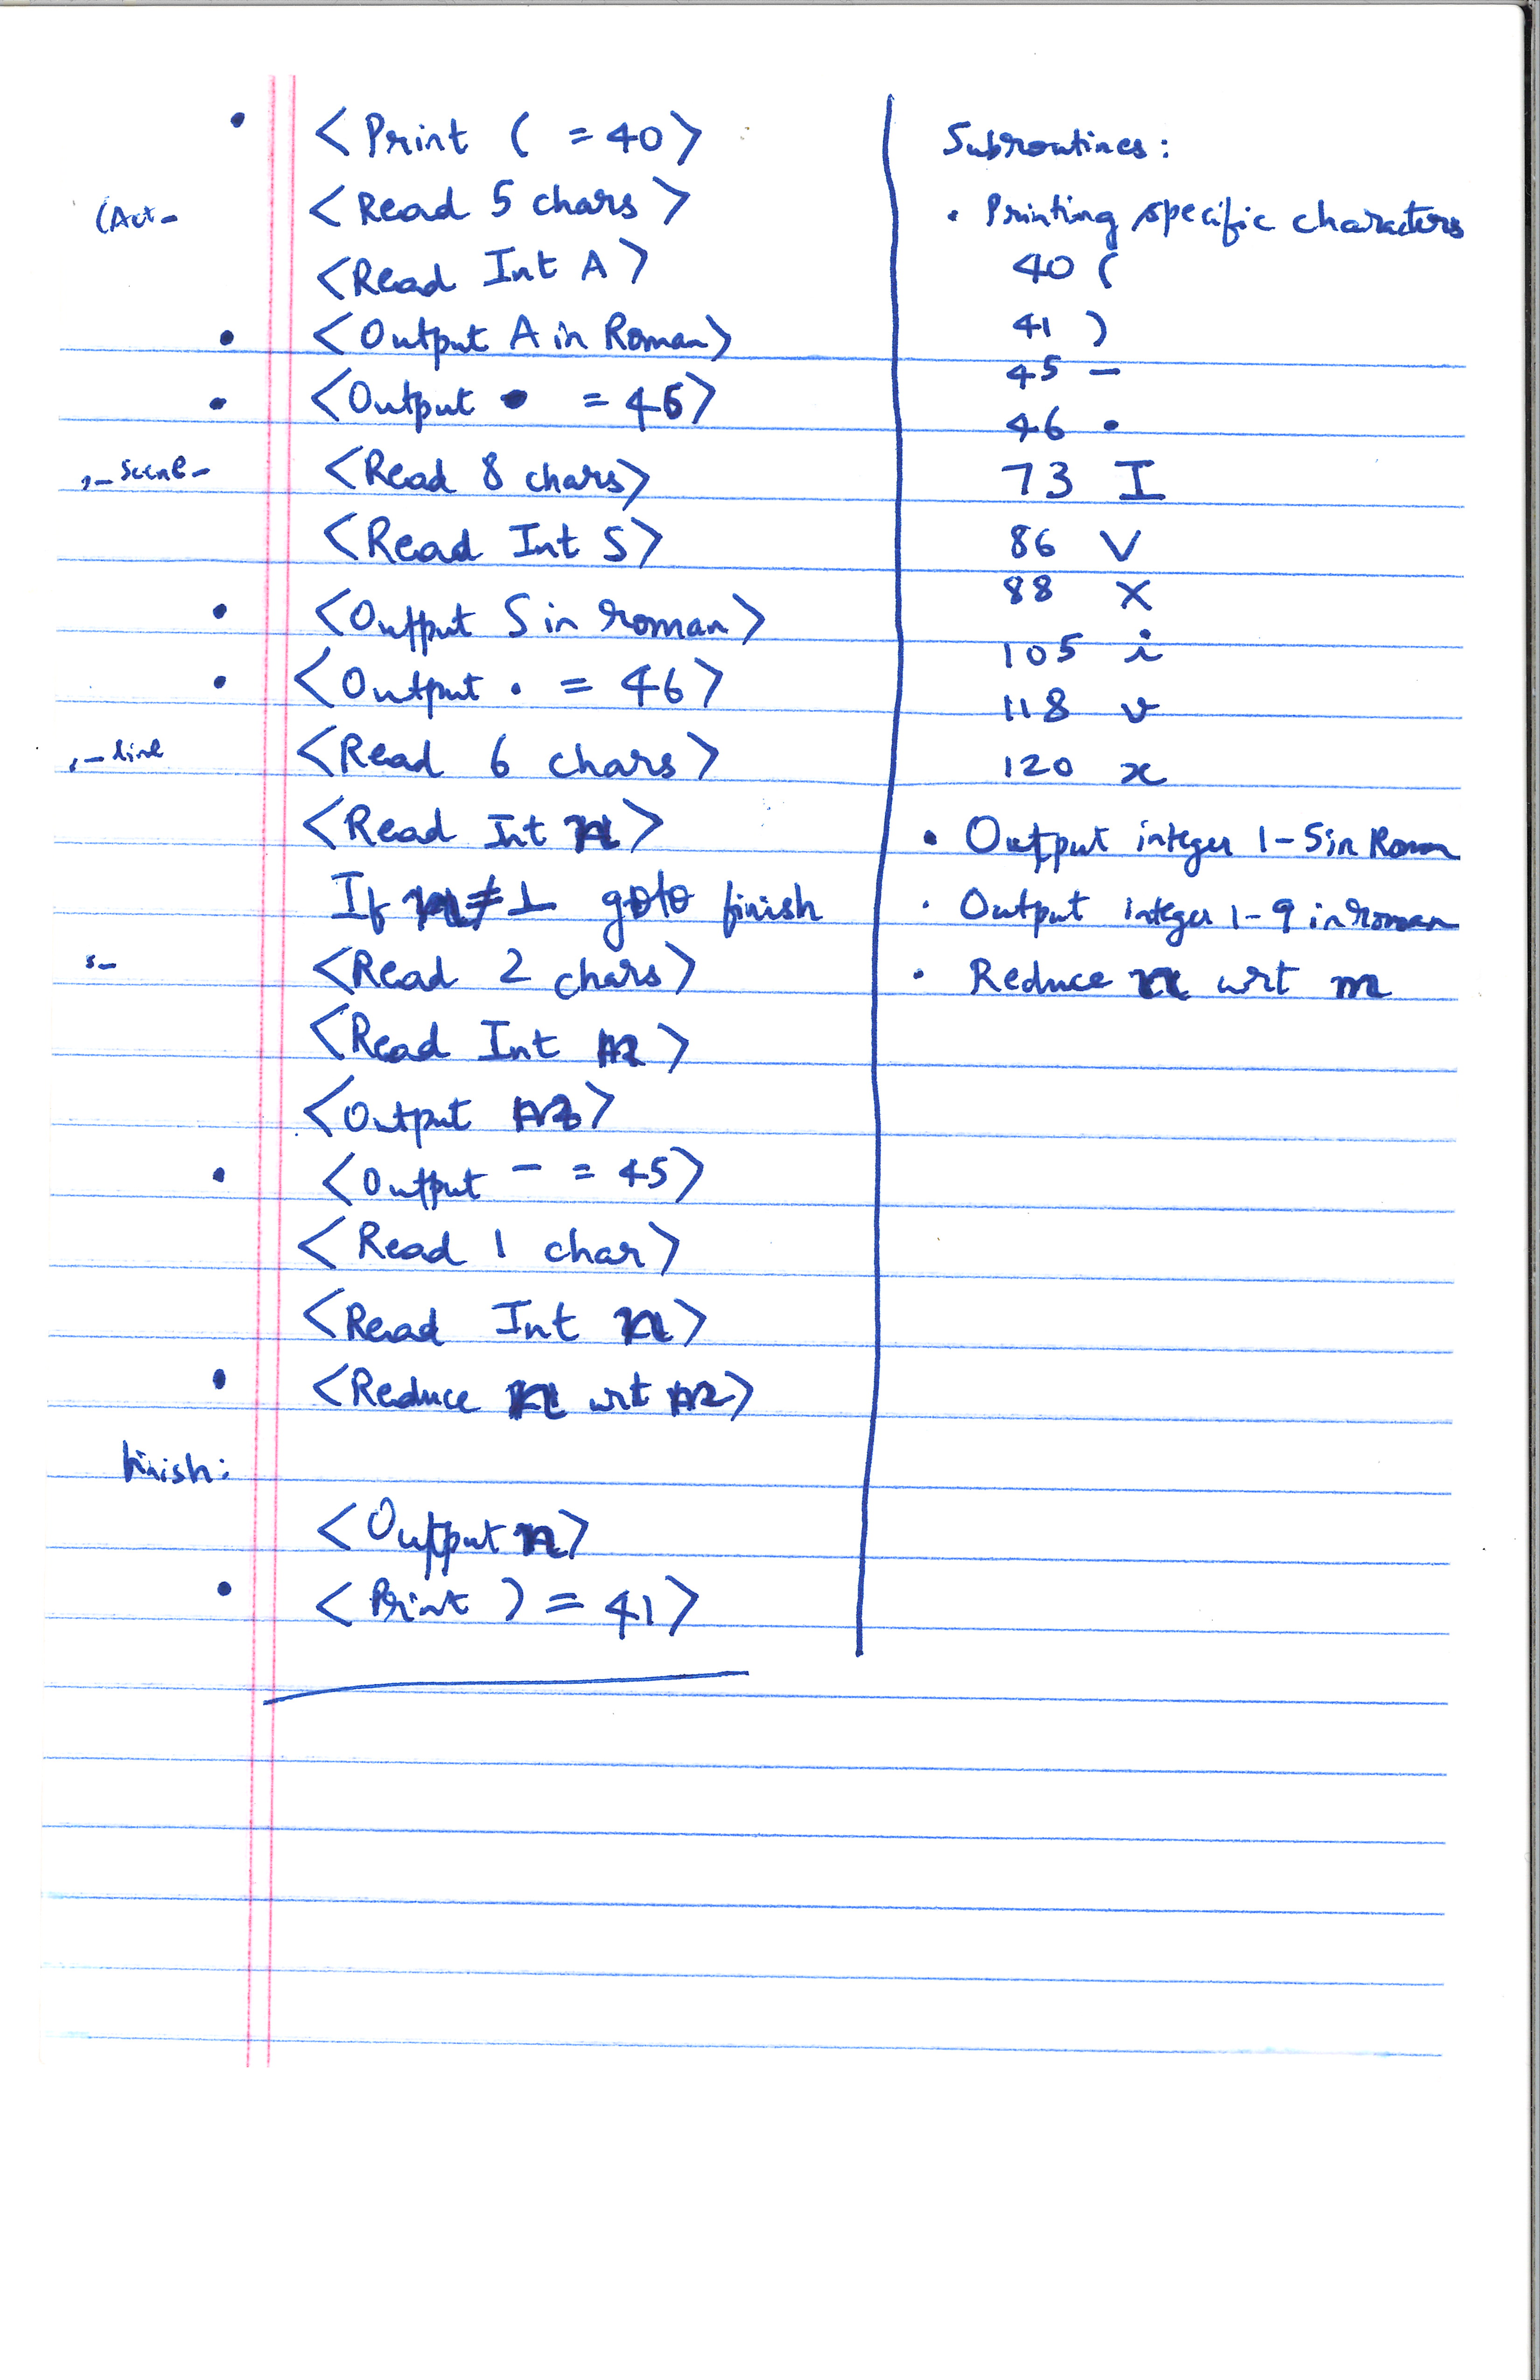 • <Print ( = 40>
(Act- <Read 5 chars>
<Read Int A>
• <Output A in Roman>
• <Output • = 46>
,_scene- <Read 8 chars>
<Read Int S>
• <Output S in roman>
• <Output . = 46>
,_line <Read 6 chars>
<Read Int n>
If n≠1 goto finish
s- <Read 2 chars>
<Read Int >
<Output >
• <Output - = 45>
<Read 1 char>
<Read Int n>
• <Reduce n wrt >
finish:
<Output n>
• <Print ) = 41>
Subroutines:
• Printing specific characters
40 (
41 )
45 -
46 •
73 I
86 V
88 X
105 i
118 v
120 x
• Output integer 1-5 in Roman
• Output integer 1-9 in roman
• Reduce n wrt m